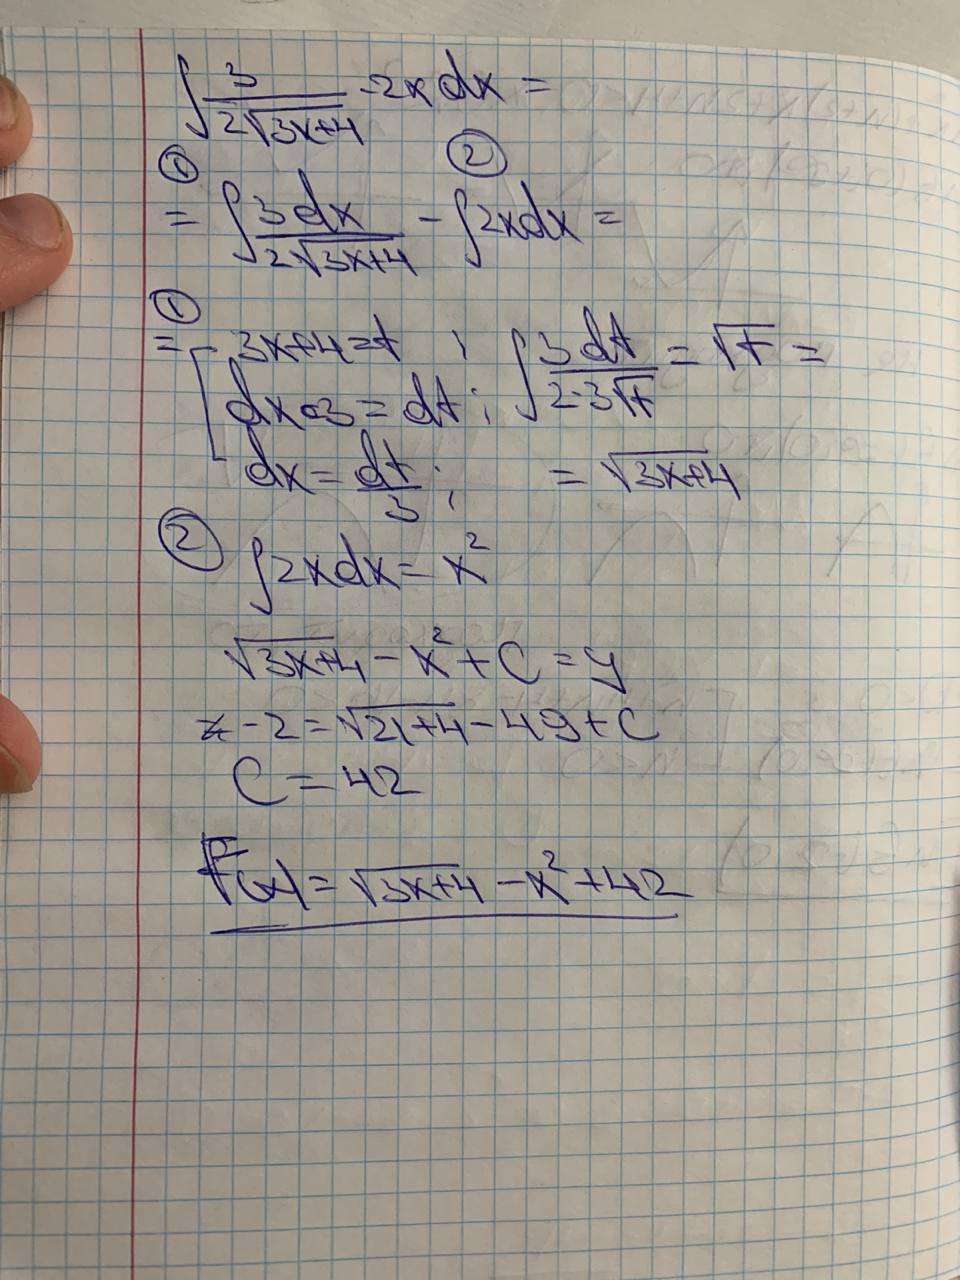 ∫ 3/(2√(3x+4)) - 2x dx =
① ②
= ∫ 3dx/(2√(3x+4)) - ∫ 2xdx =
①
= 3x+4=t ; ∫ 3dt/(2·3√t) = √t =
dx·3 = dt ;
dx = dt/3 ; = √(3x+4)
② ∫ 2xdx = x²
√(3x+4) - x² + C = y
-2 = √(21+4) - 49 + C
C = 42
F(x) = √(3x+4) - x² + 42